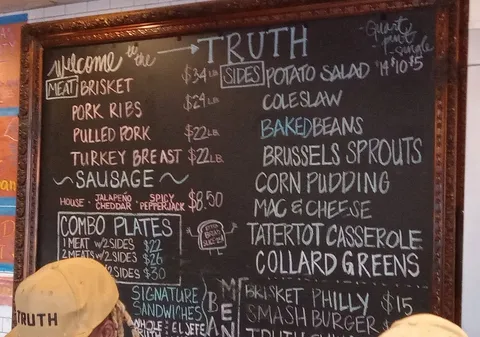 welcome to the → TRUTH
MEAT
BRISKET $34 LB
PORK RIBS $24 LB
PULLED PORK $22 LB
TURKEY BREAST $22 LB.
~ SAUSAGE ~
HOUSE - JALAPEÑO CHEDDAR SPICY PEPPERJACK $8.50
COMBO PLATES
1 MEAT w/2 SIDES $22
2 MEATS w/2 SIDES $26
w/2 SIDES $30
SIDES
-Quart
-pint
-single
$14 $10 $5
POTATO SALAD
COLESLAW
BAKED BEANS
BRUSSELS SPROUTS
CORN PUDDING
MAC & CHEESE
TATERTOT CASSEROLE
COLLARD GREENS
SIGNATURE
SANDWICHES
WHOLE EL JEFE
BRISKET PHILLY $15
SMASH BURGER
TRUTH
TRUTH